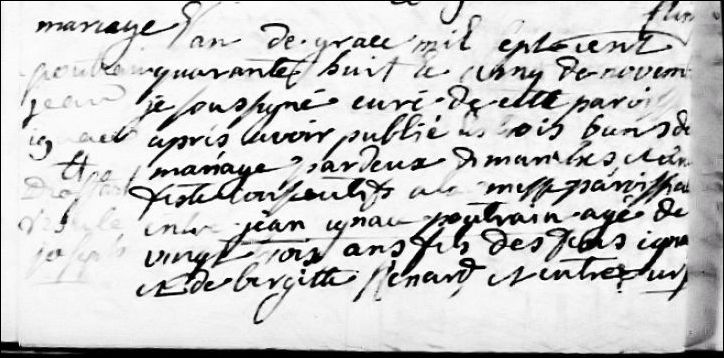 mariage L'an de grace mil sept cent
poutrain quarante huit le cinq de novem
jean je soussigné curé de cette parois
ignace apres avoir publié les trois bans de
et mariage par deux dimanches et un
feste consecutifs a la messe paroissia
ursule entre jean ignace poutrain agé de
joseph vingt trois ans fils des feus igna
et de bergitte Renard et entre urs